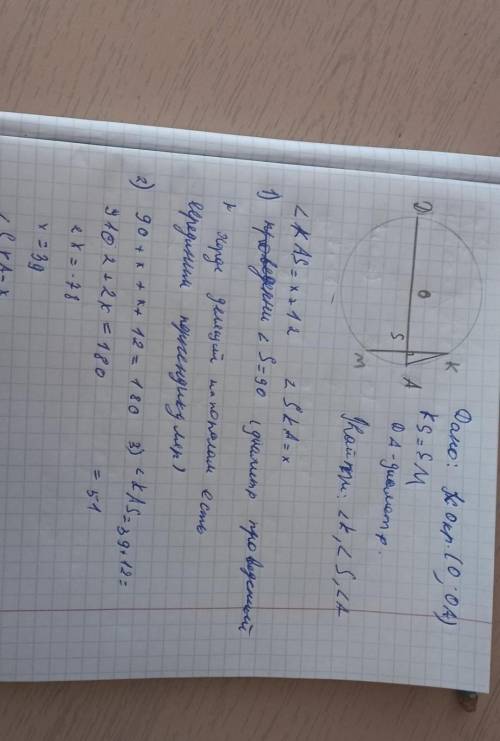 Дано: окр.(O; OA)
KS=SM
DA-диаметр.
Найти: ∠K, ∠S, ∠A
D
O
S
M
A
K
∠KAS=x+12 ∠SKA=x
1) проведении ∠S=90 (диаметр проведенный
к хорде делящий пополам есть
серединным перпендикуляр)
2) 90+x+x+12=180
102+2x=180
2x=78
x=39
3) ∠KAS=39+12=
=51
∠SKA=x